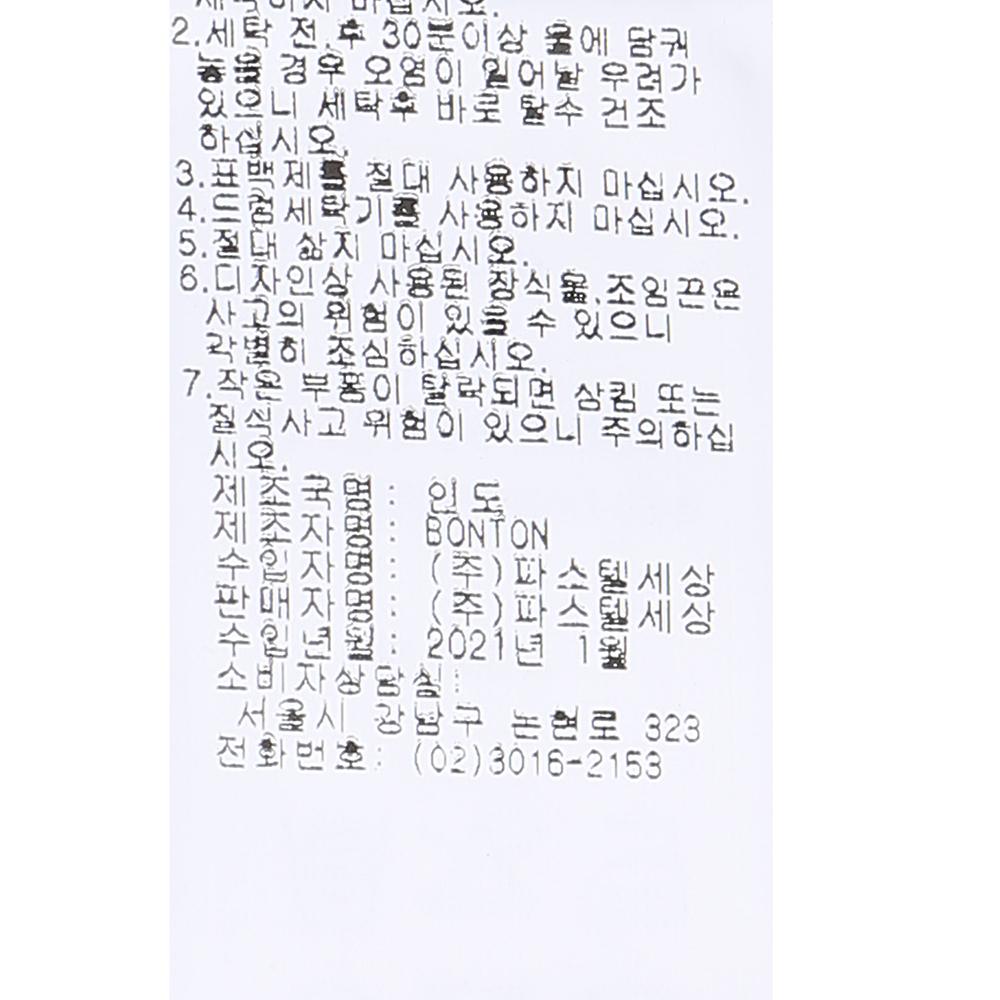 하지 마십시오.
2.세탁 전.후 30분이상 물에 담궈
놓을 경우 오염이 일어날 우려가
있으니 세탁후 바로 탈수 건조
하십시오.
3.표백제를 절대 사용하지 마십시오.
4.드럼세탁기를 사용하지 마십시오.
5.절대 삶지 마십시오.
6.디자인상 사용된 장식물,조임끈은
사고의 위험이 있을 수 있으니
각별히 조심하십시오.
7.작은 부품이 탈락되면 삼킴 또는
질식사고 위험이 있으니 주의하십
시오.
제조국명: 인도
제조자명: BONTON
수입자명: (주)파스텔세상
판매자명: (주)파스텔세상
수입년월: 2021년 1월
소비자상담실:
서울시 강남구 논현로 323
전화번호: (02)3016-2153